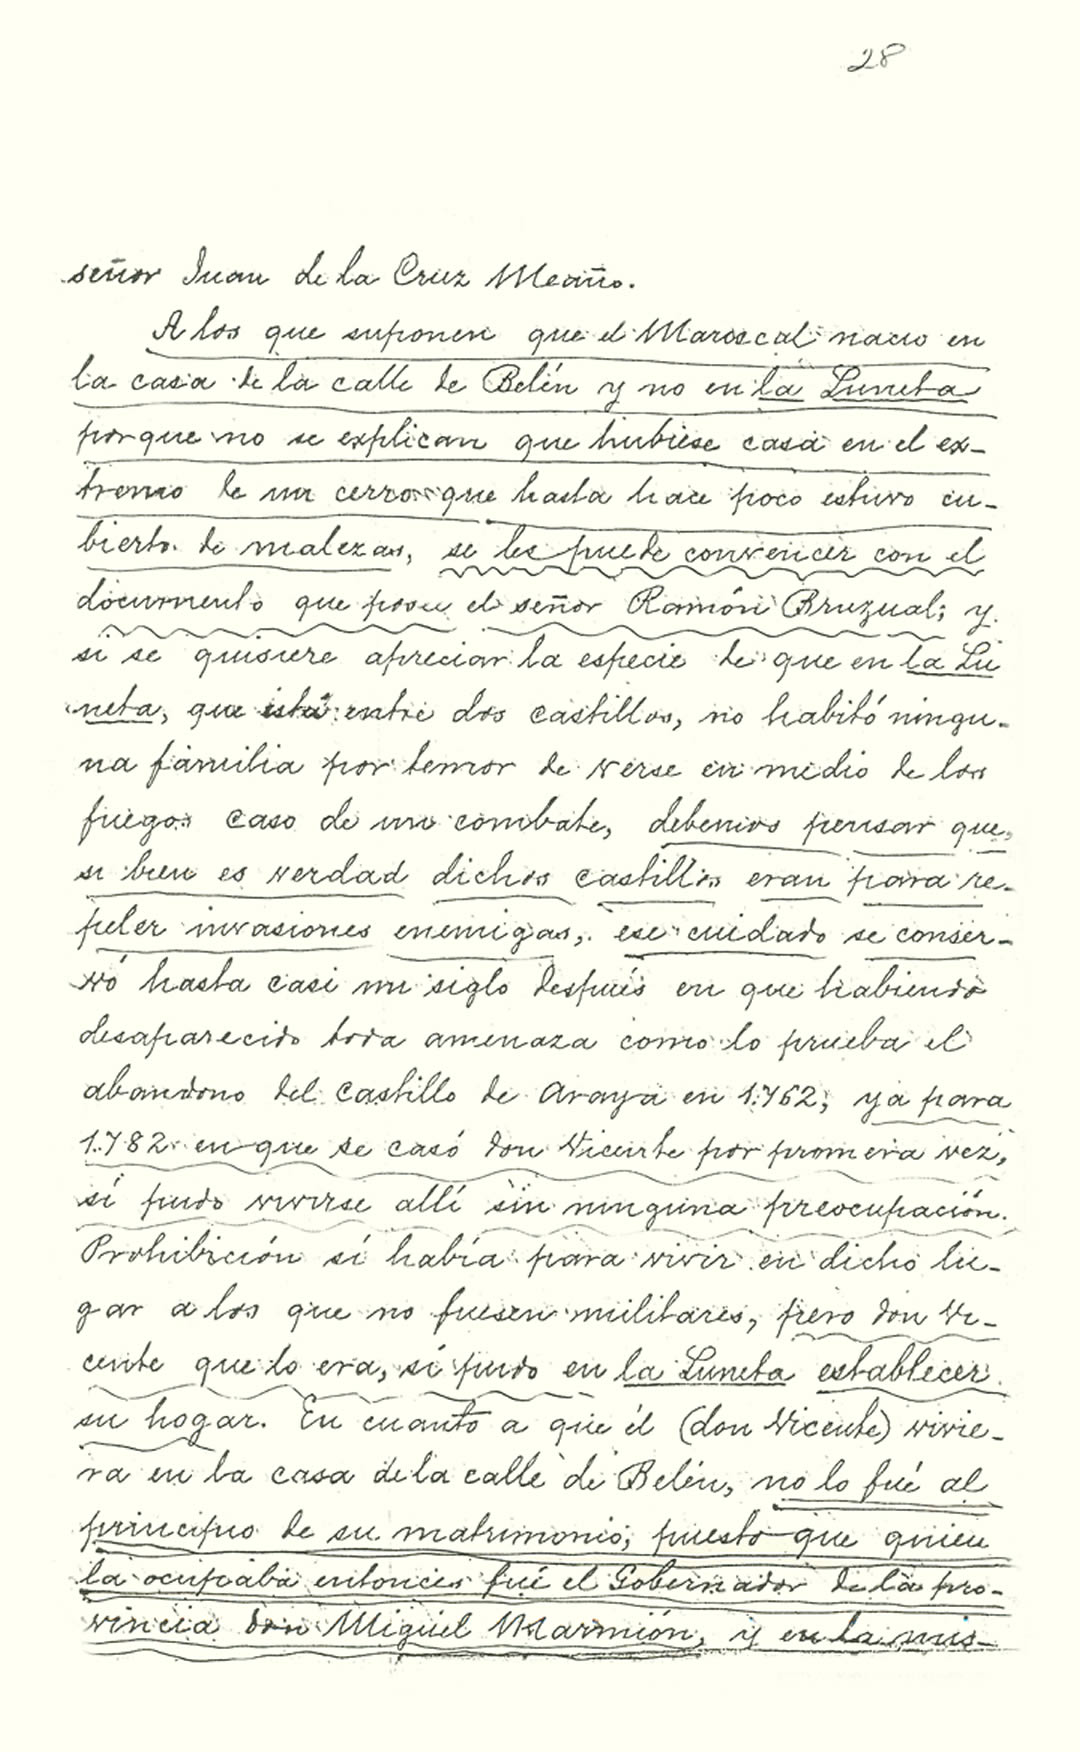 28
señor Juan de la Cruz Meaño.
A los que suponen que el Mariscal nació en
la casa de la calle de Belén y no en la Luneta
porque no se explican que hubiese casa en el ex-
tremo de un cerro que hasta hace poco estuvo cu-
bierto de malezas, se les puede convencer con el
documento que posee el señor Ramón Bruzual; y
si se quisiere apreciar la especie de que en la Lu
neta, que está entre dos castillos, no habitó ningu-
na familia por temor de verse en medio de los
fuegos caso de un combate, debemos pensar que,
si bien es verdad dichos castillos eran para re-
peler invasiones enemigas, ese cuidado se conser-
vó hasta casi un siglo después en que habiendo
desaparecido toda amenaza como lo prueba el
abandono del Castillo de Araya en 1.762; ya para
1.782 en que se casó don Vicente por primera vez,
sí pudo vivirse allí sin ninguna preocupación.
Prohibición sí había para vivir en dicho lu-
gar a los que no fuesen militares, pero don Vi-
cente que lo era, sí pudo en la Luneta establecer
su hogar. En cuanto a que él (don Vicente) vivie-
ra en la casa de la calle de Belén, no lo fué al
principio de su matrimonio; puesto que quien
la ocupaba entonces fué el Gobernador de la pro-
vincia don Miguel Marmión, y en la mis-